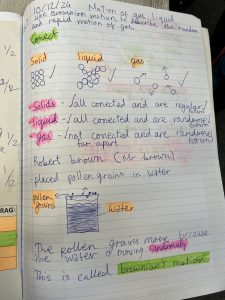 10/12/24 Motion of gas liquid
use Brownian motion to describe the random
and rapid motion of gas.
Conect
Solid liquid gas
Solids - ✓all conected and are regular
liquid - ✓all conected and are randome
gas - ✓not conected and are randome
far apart
Robert brown (Mr brown)
- placed pollen grains in water
pollen
grains
water
The pollen grains move because
the water is moving randomly
This is called brownian's motion
1/2
1/2
1/2
RAG